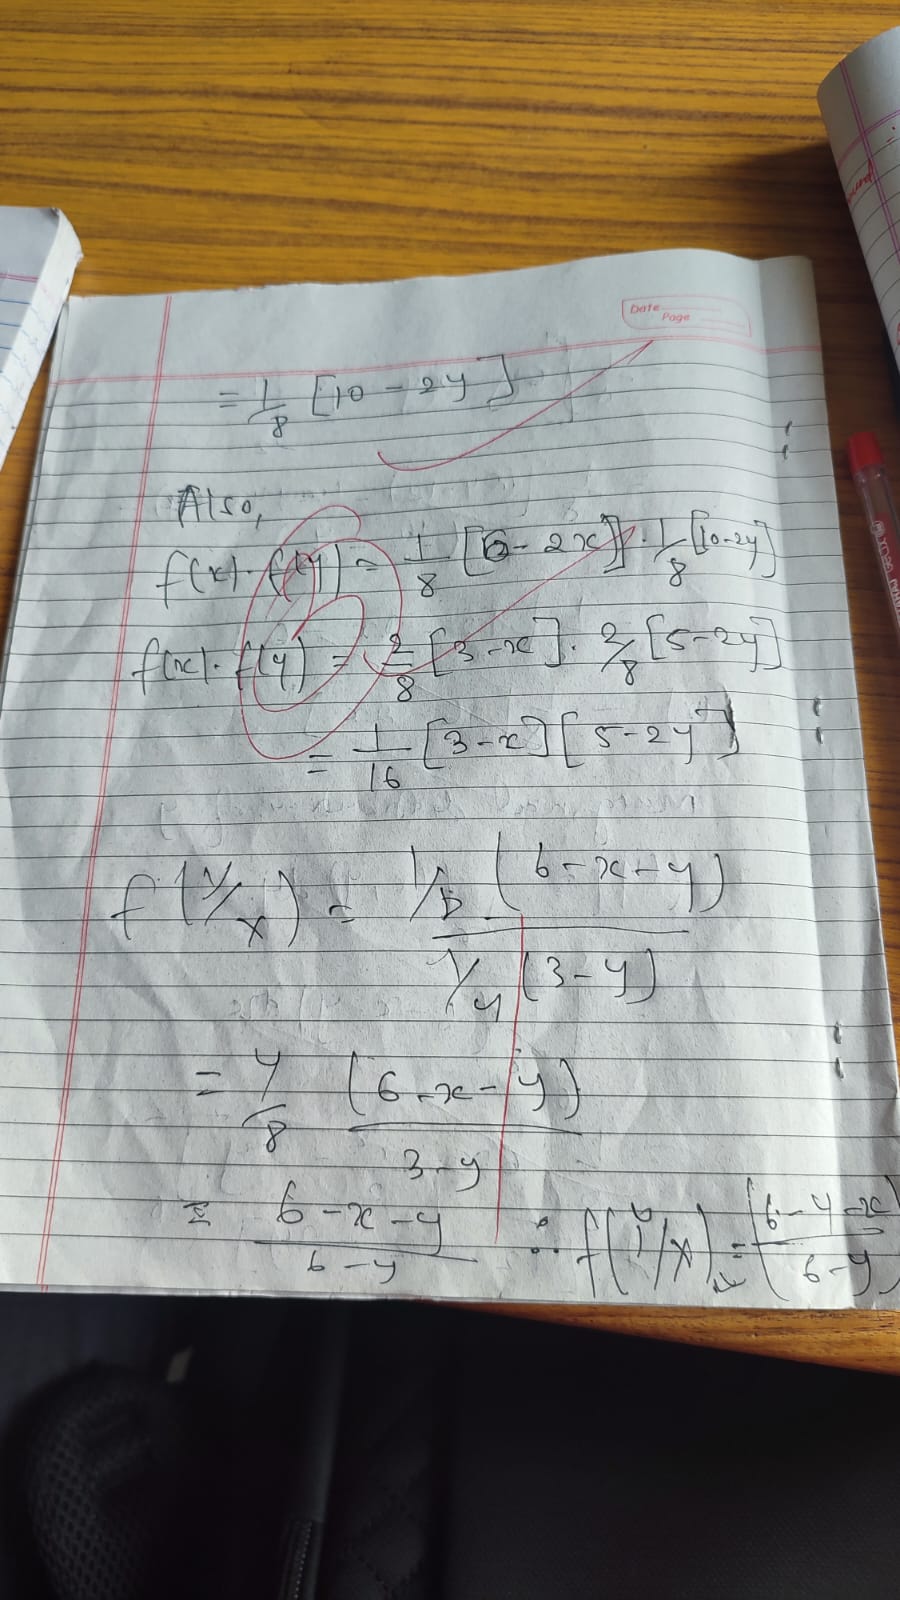 Date
Page
= 1/8 [10 - 2y]
Also,
f(x). f(y) = 1/8 [6 - 2x] . 1/8 [10-2y]
f(x). f(y) = 2/8 [3-x] . 2/8 [5-2y]
= 1/16 [3-x] [5-2y]
f(y/x) = 1/8 (6-x-y) / 1/4 (3-y)
= 4/8 (6-x-y) / 3-y
= 6-x-y / 6-y ∴ f(y/x) = (6-y-x / 6-y)